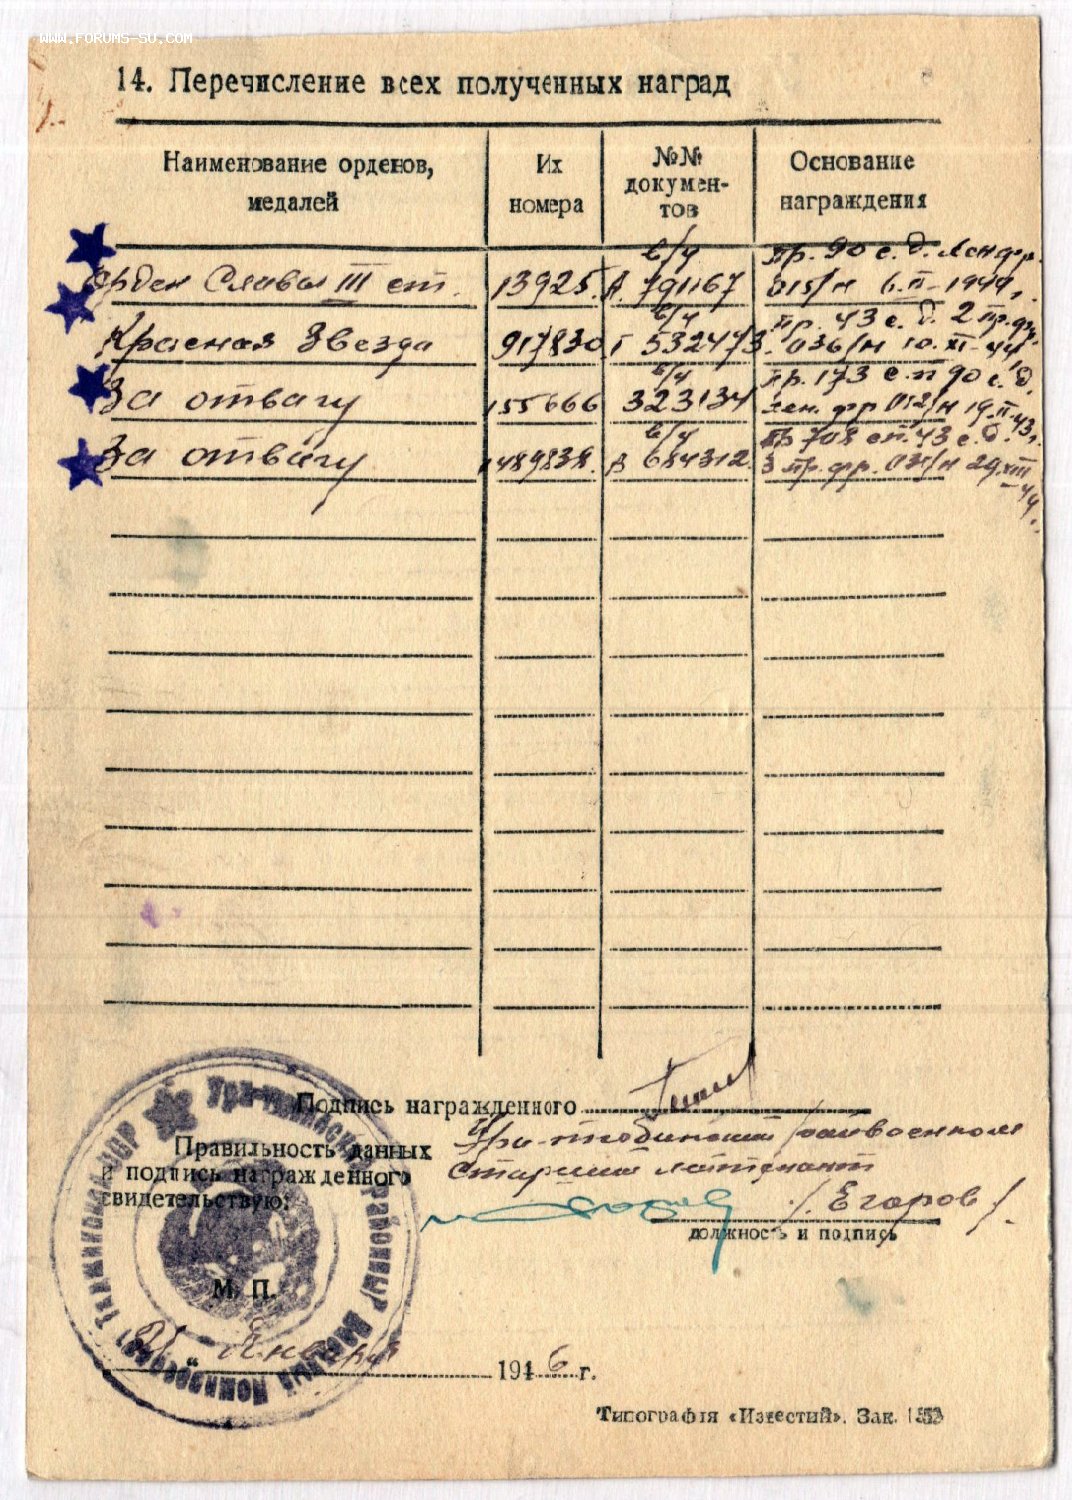 WWW.FORUMS-SU.COM
14. Перечисление всех полученных наград
Наименование орденов, медалей
Их номера
№№ документов
Основание награждения
Орден Славы III ст. 13925. в/ч А. 791167 пр. 90 с. д. Лен фр. 015/н 6. II - 1944 г.
Красная Звезда 917830 в/ч Г 532473. пр. 43 с. д. 2 пр. фр. 036/н 10. XI - 44
За отвагу 155666 в/ч 323134 пр. 173 с. п 90 с. д. Лен. фр 012/н 19. II - 43 г.
За отвагу 1489838. в/ч 684312. пр 708 сп. 43 с. д. 3 пр. фр. 29. - 44 г.
Подпись награжденного
Правильность данных
и подпись награжденного
свидетельствую:
Ура-тюбинский райвоенком
Старший лейтенант
/. Егоров /.
должность и подпись
М. П.
21 Января 1946 г.
Типография «Известий». Зак. 1553